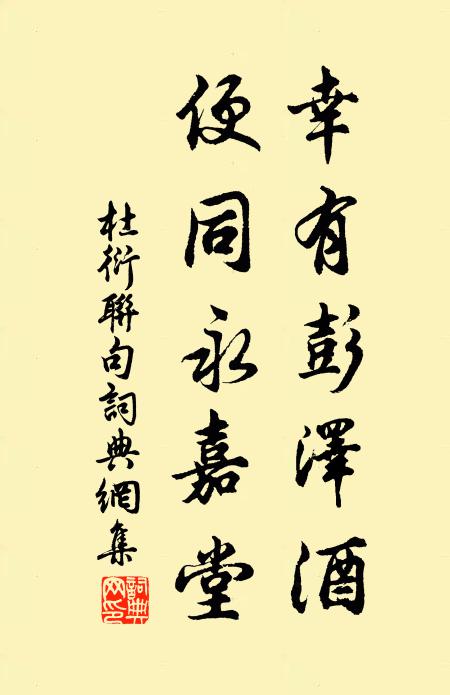 幸有彭澤酒
便同永嘉堂
杜衍聯句詞典網集
詞典網印